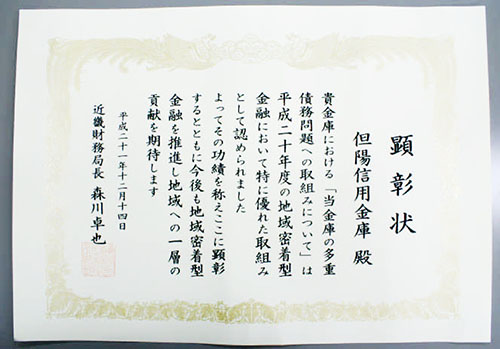 顕彰状
但陽信用金庫 殿
貴金庫における「当金庫の多重
債務問題への取組みについて」は
平成二十年度の地域密着型
金融において特に優れた取組み
として認められました
よってその功績を称えここに顕彰
するとともに今後も地域密着型
金融を推進し地域への一層の
貢献を期待します
平成二十一年十二月十四日
近畿財務局長 森川卓也